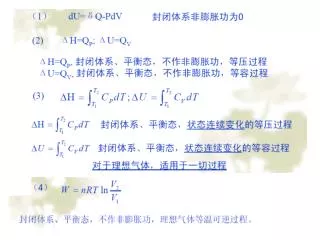 （1） dU=δQ-PdV 封闭体系非膨胀功为0
(2) ΔH=Q_P; ΔU=Q_V
ΔH=Q_P, 封闭体系、平衡态，不作非膨胀功，等压过程
ΔU=Q_V, 封闭体系、平衡态，不作非膨胀功，等容过程
(3) ΔH = ∫_{T_1}^{T_2} C_P dT ; ΔU = ∫_{T_1}^{T_2} C_V dT
ΔH = ∫_{T_1}^{T_2} C_P dT 封闭体系、平衡态，状态连续变化的等压过程
ΔU = ∫_{T_1}^{T_2} C_V dT 封闭体系、平衡态，状态连续变化的等容过程
对于理想气体，适用于一切过程
（4） W = nRT ln V_2/V_1
封闭体系、平衡态，不作非膨胀功，理想气体等温可逆过程。